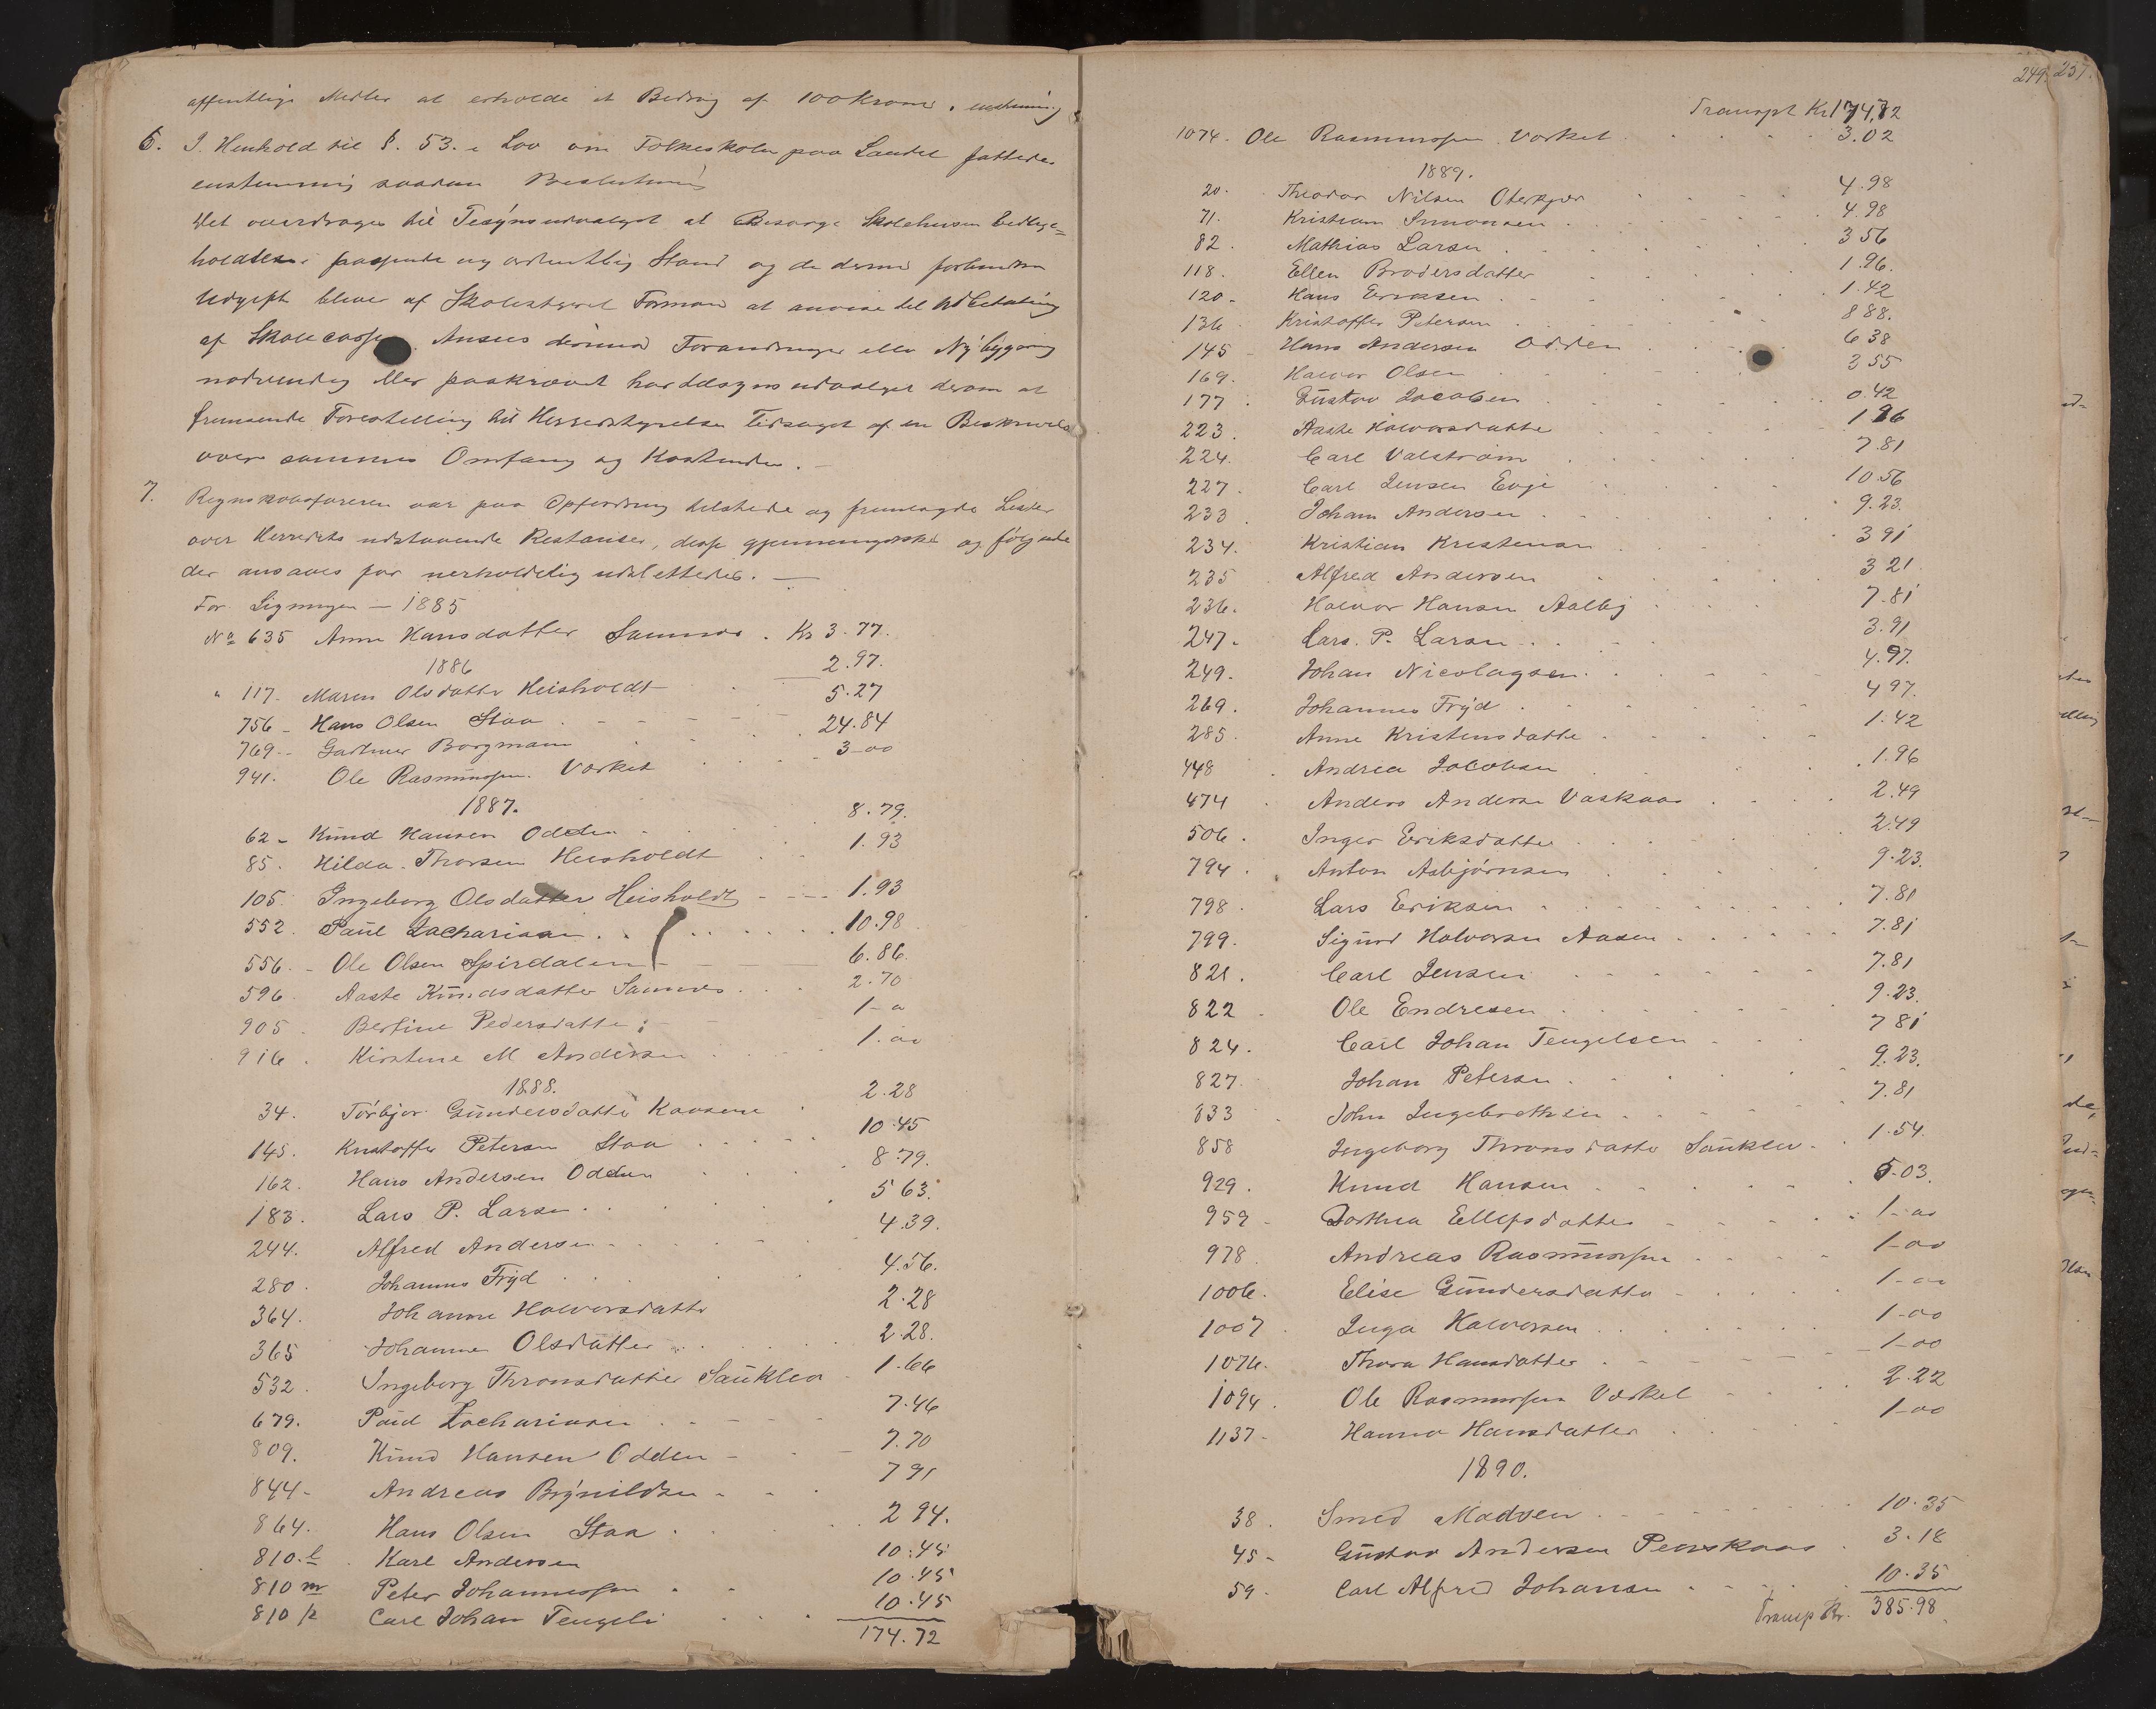 offentlige Midler at erholde et Bidrag af 100 Kroner.
6. I Henhold til §. 53. i Lov om Folkeskolen paa Landet fattedes
enstemmig saadan Beslutning
Det overdrages til Tilsynsudvalget at Besørge Skolehusene vedlige=
holdt i passende og ordentlig Stand og de dermed forbundne
Udgifter bliver af Skolestyrets Formand at anvise til Udbetaling
af Skolecassen. Ansees derimod Forandringer eller Nybygning
nødvendig eller paakrævet har tilsynsudvalget derom at
fremsende Forestilling til Herredstyrelsen Ledsaget af en Beskrivelse
over sammes Omfang og Kostende. –
7. Regnskabsføreren var paa Opfordring tilstede og fremlagde Lister
over Herredets udstaaende Restancer, disse gjennemgikkes og følgende
der ansaaes for uerholdelig udslettedes. —
For Ligningen – 1885
No 635 Anne Hansdatter Sannes . Kr 3.77.
1886
" 117 – Maren Olsdatter Heisholdt 2.97.
756 – Hans Olsen Staa 5.27
769 – Gartner Borgmann 24.84
941. Ole Rasmussen Værket 3-00
1887.
62 – Knud Hansen Odden 8.79.
85. Hilda Thorsen Heisholdt 1.93
105. Ingeborg Olsdatter Heisholdt 1.93
552. Paul Zachariasen 10.98
556. – Ole Olsen Spirdalen 6.86.
596. Aaste Knudsdatter Sannes 2.70
905. Bertine Pedersdatter 1-0
916. Kirstine M Andersen 1.00
1888.
34. Torbjør Gundersdatter Kaasene 2.28
145. Kristoffer Petersen Staa 10.45
162. Hans Andersen Odden 8.79.
183. Lars P. Larsen 5 63.
244. Alfred Andersen 4.39.
280. Johannes Fryd 4.56.
364. Johanne Halvorsdatter 2.28
365 Johanne Olsdatter 2.28.
532. Ingeborg Thronsdatter Sauklea 1.66
679. Paul Zachariasen 7.46
809. Knud Hansen Odden 7.70
844 – Andreas Brynildsen 7 91
864. Hans Olsen Staa 2 94.
810.l Karl Andersen 10.45
810 m Peter Johannessen 10.45
810 k Carl Johan Tengels 10.45
174.72
249. 257.
Transpt Kr 174,72
1074. Ole Rasmussen Værket 3.02
1889.
20. Theodor Nilsen Oterkjær 4.98
71. Kristian Simonsen 4.98
82. Mathias Larsen 3 56
118. Ellen Brodersdatter 1.96.
120 – Hans Eriksen 1.42
136 Kristoffer Petersen 8 88.
145 – Hans Andersen Odden 6 38
169. Halvor Olsen 3 55
177. Gustav Jacobsen 0.42
223. Aaste Halvorsdatter 1 96
224. Carl Valstrøm 7.81
227. Carl Jensen Evje 10.56
233. Johan Andersen 9.23.
234. Kristian Kristensen 3 91
235 Alfred Andersen 3 21.
236. Halvor Hansen Aalby 7.81
247. Lars. P. Larsen 3.91
249. Johan Nicolaysen 4.97.
269. Johannes Fryd 4 97.
285. Anne Kristensdatter 1.42
448. Andrea Jacobsen 1.96
474. Anders Andersen Vaskaas 2.49
506. Inger Eriksdatter 2.49
794. Anton Asbjørnsen 9.23.
798. Lars Eriksen 7.81
799. Sigurd Halvorsen Aasen 7.81
821. Carl Jensen 7.81
822 Ole Endresen 9.23.
824. Carl Johan Tengelsen 7 81
827. Johan Petersen 9.23.
833 John Ingebrethsen 7.81
858 Ingeborg Thronsdatter Sauklev 1.54.
929. Knud Hansen 5.03.
959 – Dorthea Ellefsdatter 1-00
978. Andreas Rasmussen 1-00
1006. Elise Gundersdatter 1-00
1007. Inga Halvorsen 1-00
1076. Thora Hansdatter 1-00
1094. Ole Rasmussen Værket 2.22
1137 – Hanna Hansdatter 1-00
1890.
38. Smed Madsen 10.35
45 – Gustav Andersen 3.18
59. Carl Alfred Johansen 10.35
Transp Kr. 385.98